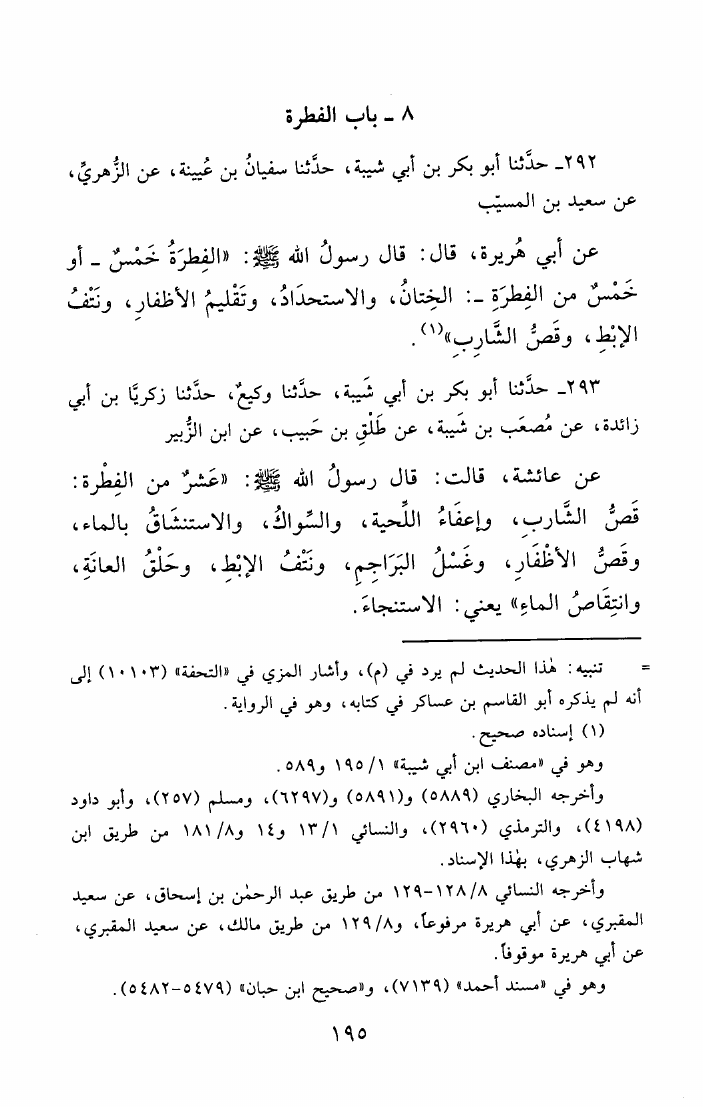 ٨ ـ باب الفطرة
٢٩٢ـ حدَّثنا أبو بكر بن أبي شيبة، حدَّثنا سفيانُ بن عُيينة، عن الزُّهريِّ،
عن سعيد بن المسيّب
عن أبي هُريرة، قال: قال رسولُ الله ﷺ: «الفِطرَةُ خَمْسٌ ـ أو
خَمْسٌ من الفِطرَةِ ـ: الخِتانُ، والاستحدَادُ، وتَقْليمُ الأظفارِ، ونَتْفُ
الإبْطِ، وقَصُّ الشَّارِبِ»(١).
٢٩٣ـ حدَّثنا أبو بكر بن أبي شَيبة، حدَّثنا وكيعٌ، حدَّثنا زكريَّا بن أبي
زائدة، عن مُصعَب بن شَيبة، عن طَلْقِ بن حَبيب، عن ابن الزُّبير
عن عائشة، قالت: قال رسولُ الله ﷺ: «عَشرٌ من الفِطْرة:
قَصُّ الشَّاربِ، وإعفَاءُ اللِّحية، والسِّواكُ، والاستنشَاقُ بالماء،
وقصُّ الأظْفَارِ، وغَسْلُ البَرَاجِمِ، ونَتْفُ الإبْطِ، وحَلْقُ العانَةِ،
وانتِقَاصُ الماءِ» يعني: الاستنجاءَ.
= تنبيه: هٰذا الحديث لم يرد في (م)، وأشار المزي في «التحفة» (١٠١٠٣) إلى
أنه لم يذكره أبو القاسم بن عساكر في كتابه، وهو في الرواية.
(١) إسناده صحيح.
وهو في «مصنف ابن أبي شيبة» ١/ ١٩٥ و٥٨٩.
وأخرجه البخاري (٥٨٨٩) و(٥٨٩١) و(٦٢٩٧)، ومسلم (٢٥٧)، وأبو داود
(٤١٩٨)، والترمذي (٢٩٦٠)، والنسائي ١/ ١٣ و١٤ و٨/ ١٨١ من طريق ابن
شهاب الزهري، بهٰذا الإسناد.
وأخرجه النسائي ٨/ ١٢٨-١٢٩ من طريق عبد الرحمٰن بن إسحاق، عن سعيد
المقبري، عن أبي هريرة مرفوعاً، و٨/ ١٢٩ من طريق مالك، عن سعيد المقبري،
عن أبي هريرة موقوفاً.
وهو في «مسند أحمد» (٧١٣٩)، و«صحيح ابن حبان» (٥٤٧٩-٥٤٨٢).
١٩٥